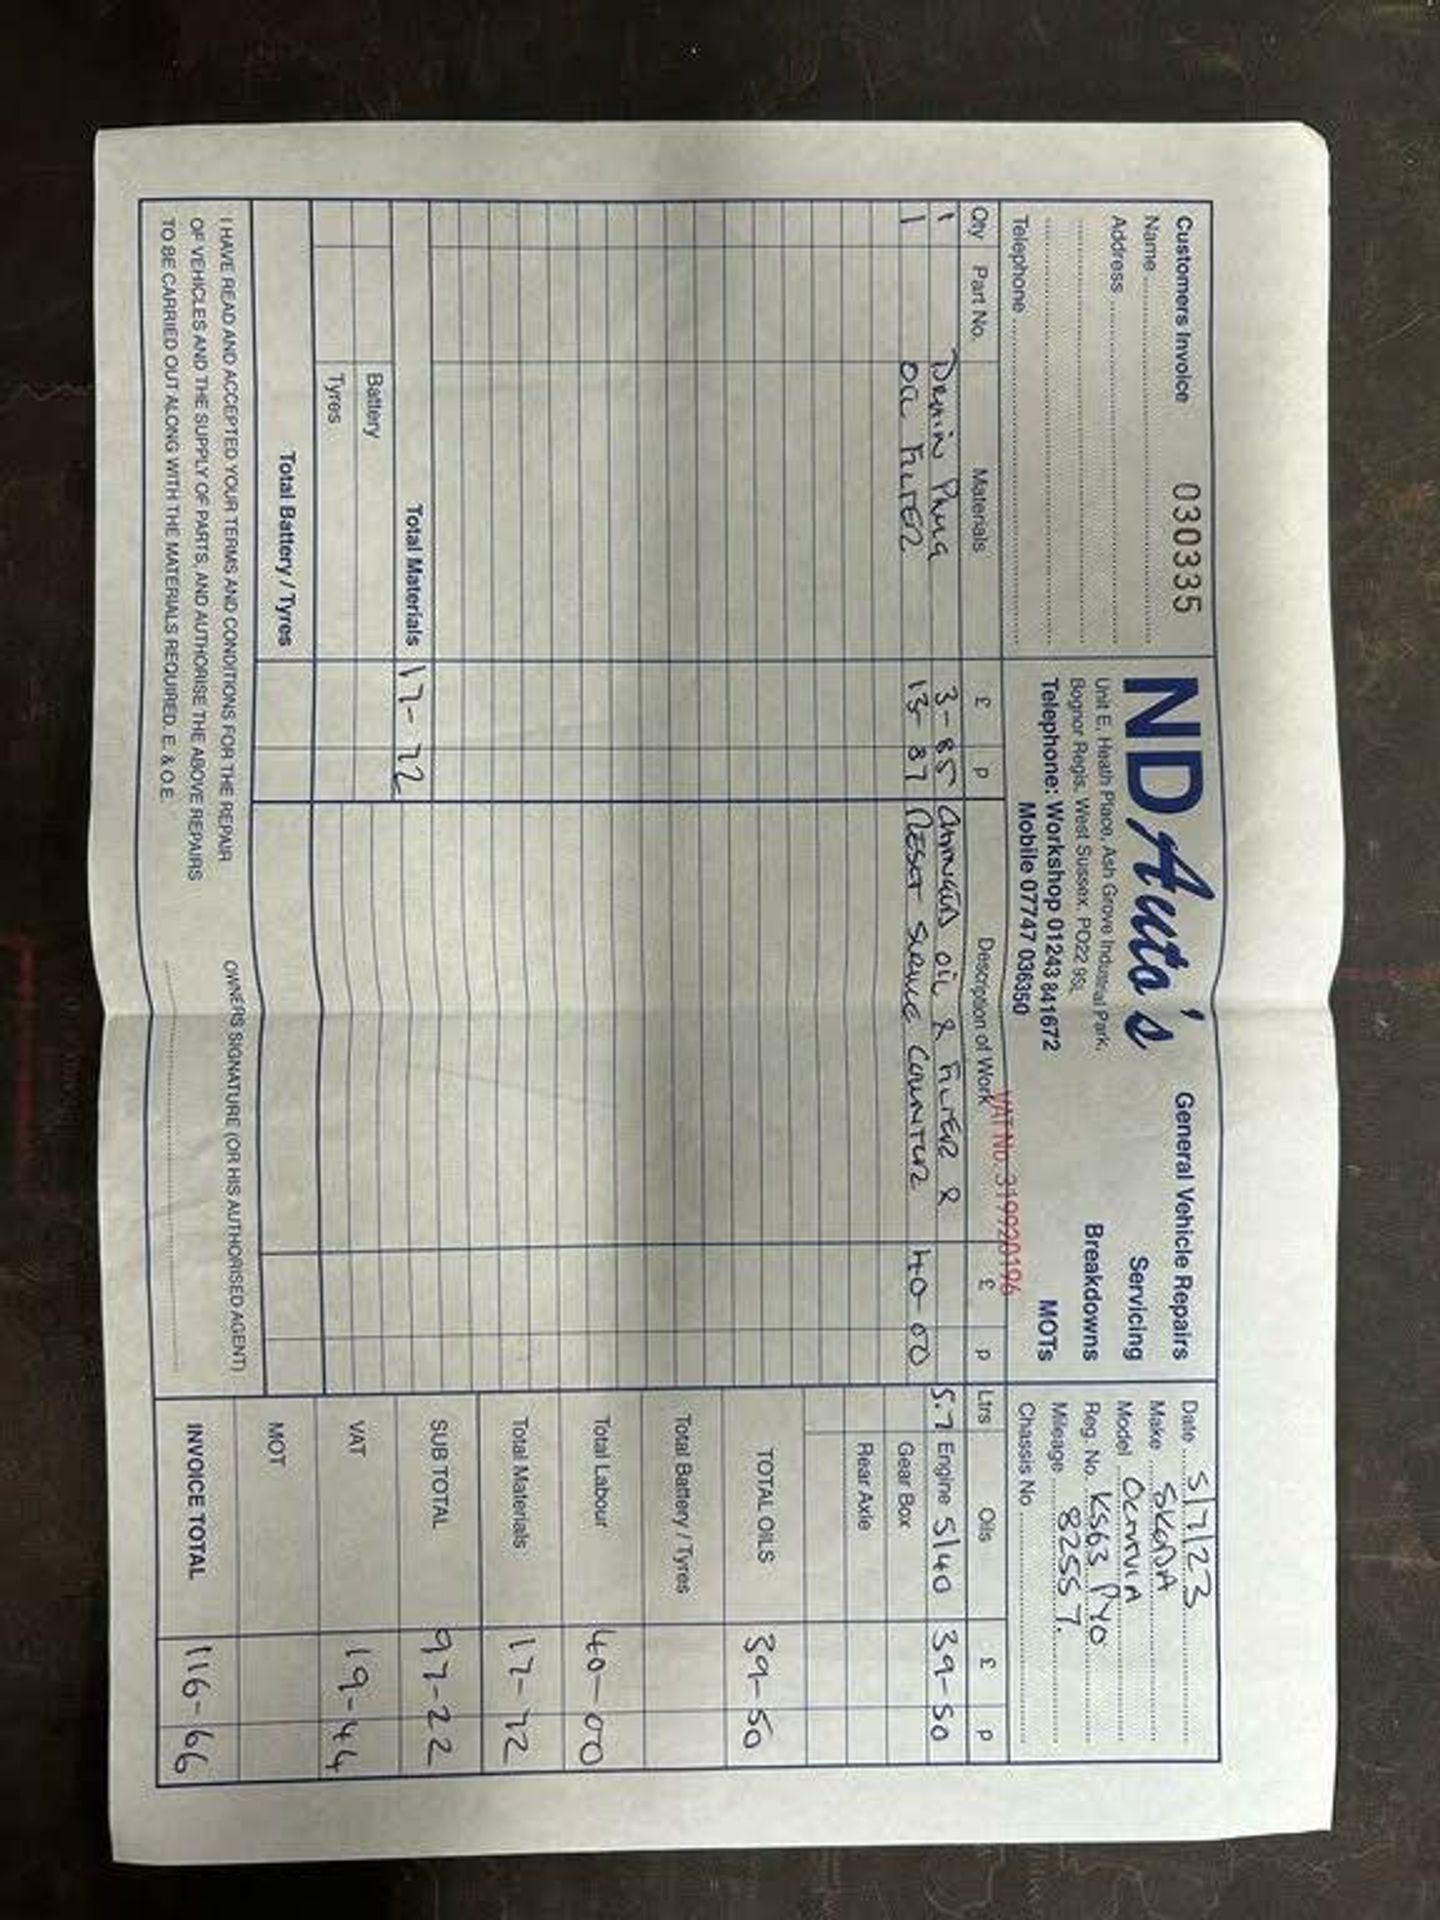 Customers Invoice 030335
Name
Address
Telephone
NDAuto's
Unit E, Heath Place, Ash Grove Industrial Park,
Bognor Regis, West Sussex, PO22 9SL
Telephone: Workshop 01243 841672
Mobile 07747 036350
General Vehicle Repairs
Servicing
Breakdowns
MOTs
VAT No. 319920196
Date 5/7/23
Make SKODA
Model OCTAVIA
Reg. No. KS63 PYO
Mileage 82557.
Chassis No
Qty Part No. Materials £ p Description of Work £ p Ltrs Oils £ p
1 Drain Plug 3-85 Changed oil & Filter & 5.7 Engine 5/40 39-50
1 Oil Filter 13-87 Reset Service Counter 40-00 Gear Box
Rear Axle
TOTAL OILS 39-50
Total Battery / Tyres
Total Labour 40-00
Total Materials 17-72
Total Materials 17-72 SUB TOTAL 97-22
Battery
Tyres VAT 19-44
Total Battery / Tyres MOT
I HAVE READ AND ACCEPTED YOUR TERMS AND CONDITIONS FOR THE REPAIR
OF VEHICLES AND THE SUPPLY OF PARTS, AND AUTHORISE THE ABOVE REPAIRS
TO BE CARRIED OUT ALONG WITH THE MATERIALS REQUIRED. E. & O.E.
OWNERS SIGNATURE (OR HIS AUTHORISED AGENT)
INVOICE TOTAL 116-66